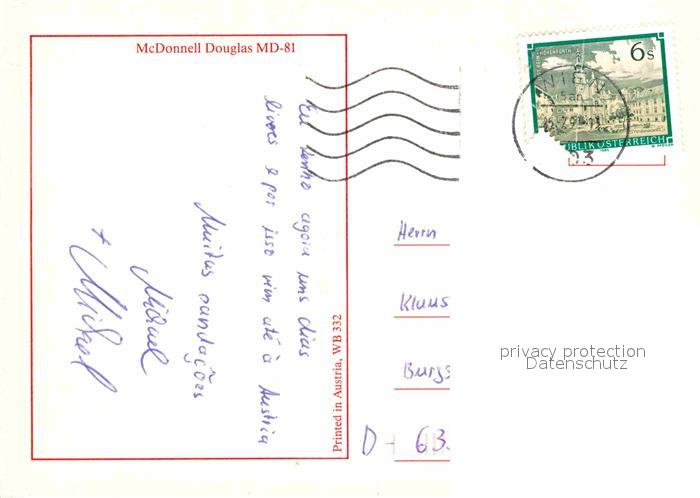 McDonnell Douglas MD-81
Eu tenho agora uns dias
livres e por isso vim até à Austria
Muitas saudações
Miguel
+ Michael
Printed in Austria, WB 332
6s
REPUBLIK ÖSTERREICH
WIEN
Herrn
Klaus
Burgs
D - 63
privacy protection
Datenschutz